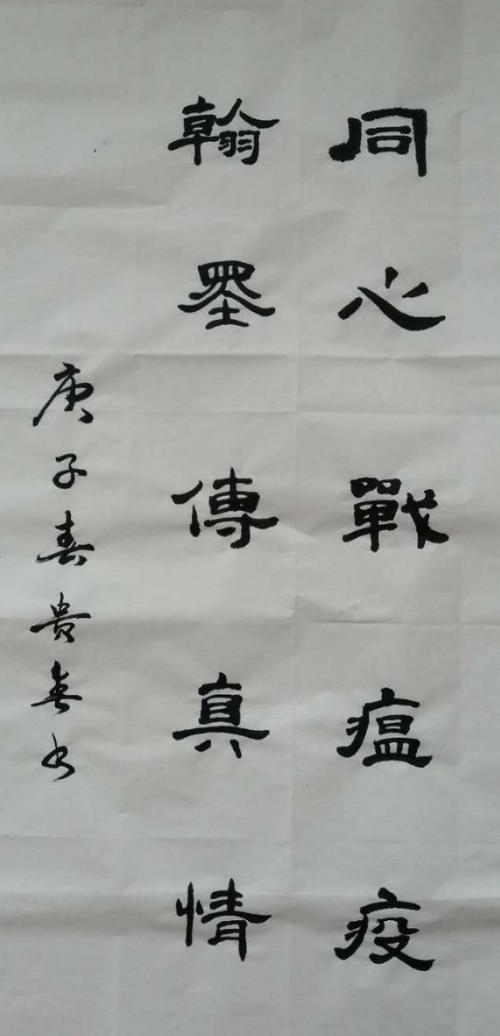 同心戰瘟疫
翰墨傳真情
庚子春贵春书